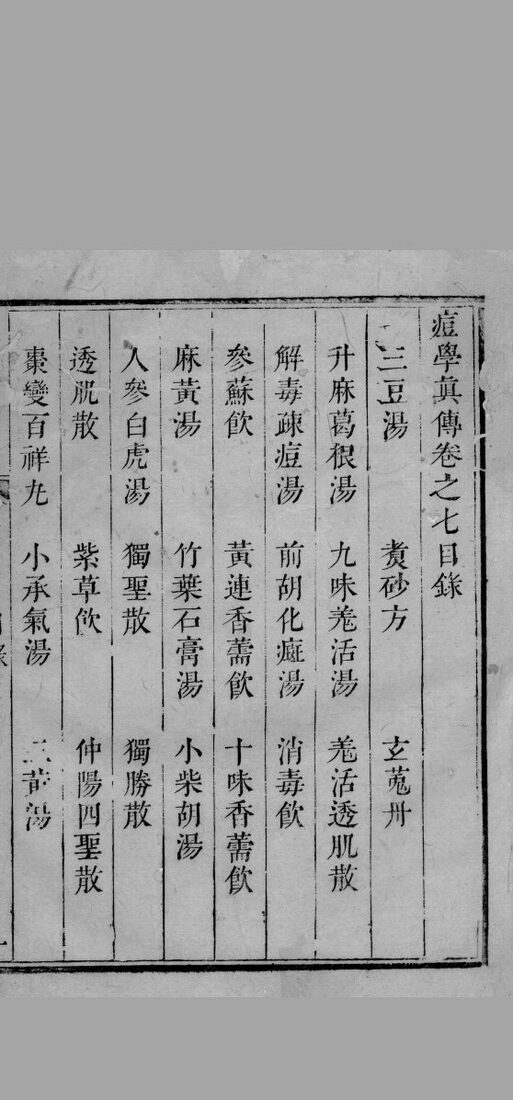 痘學眞傳卷之七目錄
三豆湯 煑砂方 玄菟丹
升麻葛根湯 九味羗活湯 羗活透肌散
解毒疎痘湯 前胡化癍湯 消毒飲
參蘇飲 黃連香薷飲 十味香薷飲
麻黃湯 竹葉石膏湯 小柴胡湯
人參白虎湯 獨聖散 獨勝散
透肌散 紫草飲 仲陽四聖散
棗變百祥丸 小承氣湯 三黃湯